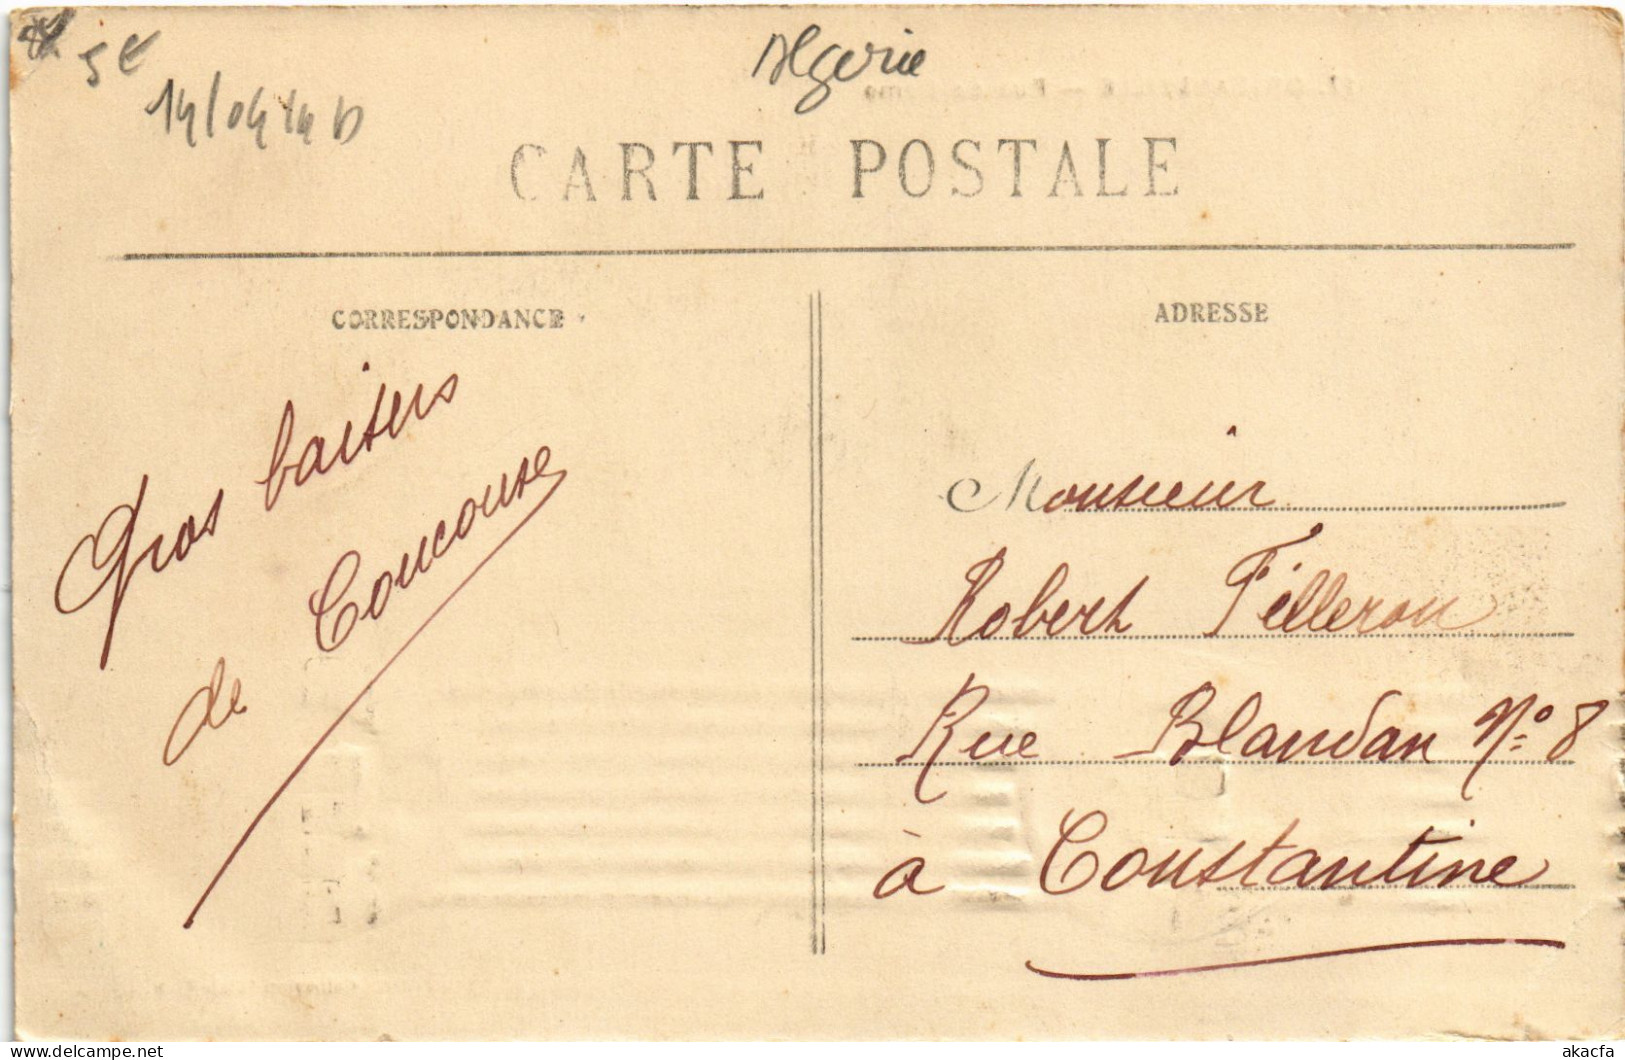 5€
14/0414D
Algerie
CARTE POSTALE
CORRESPONDANCE
ADRESSE
Gros baisers
de Coucouse
Monsieur
Robert Filleron
Rue Blandan N° 8
à Constantine
akacfa